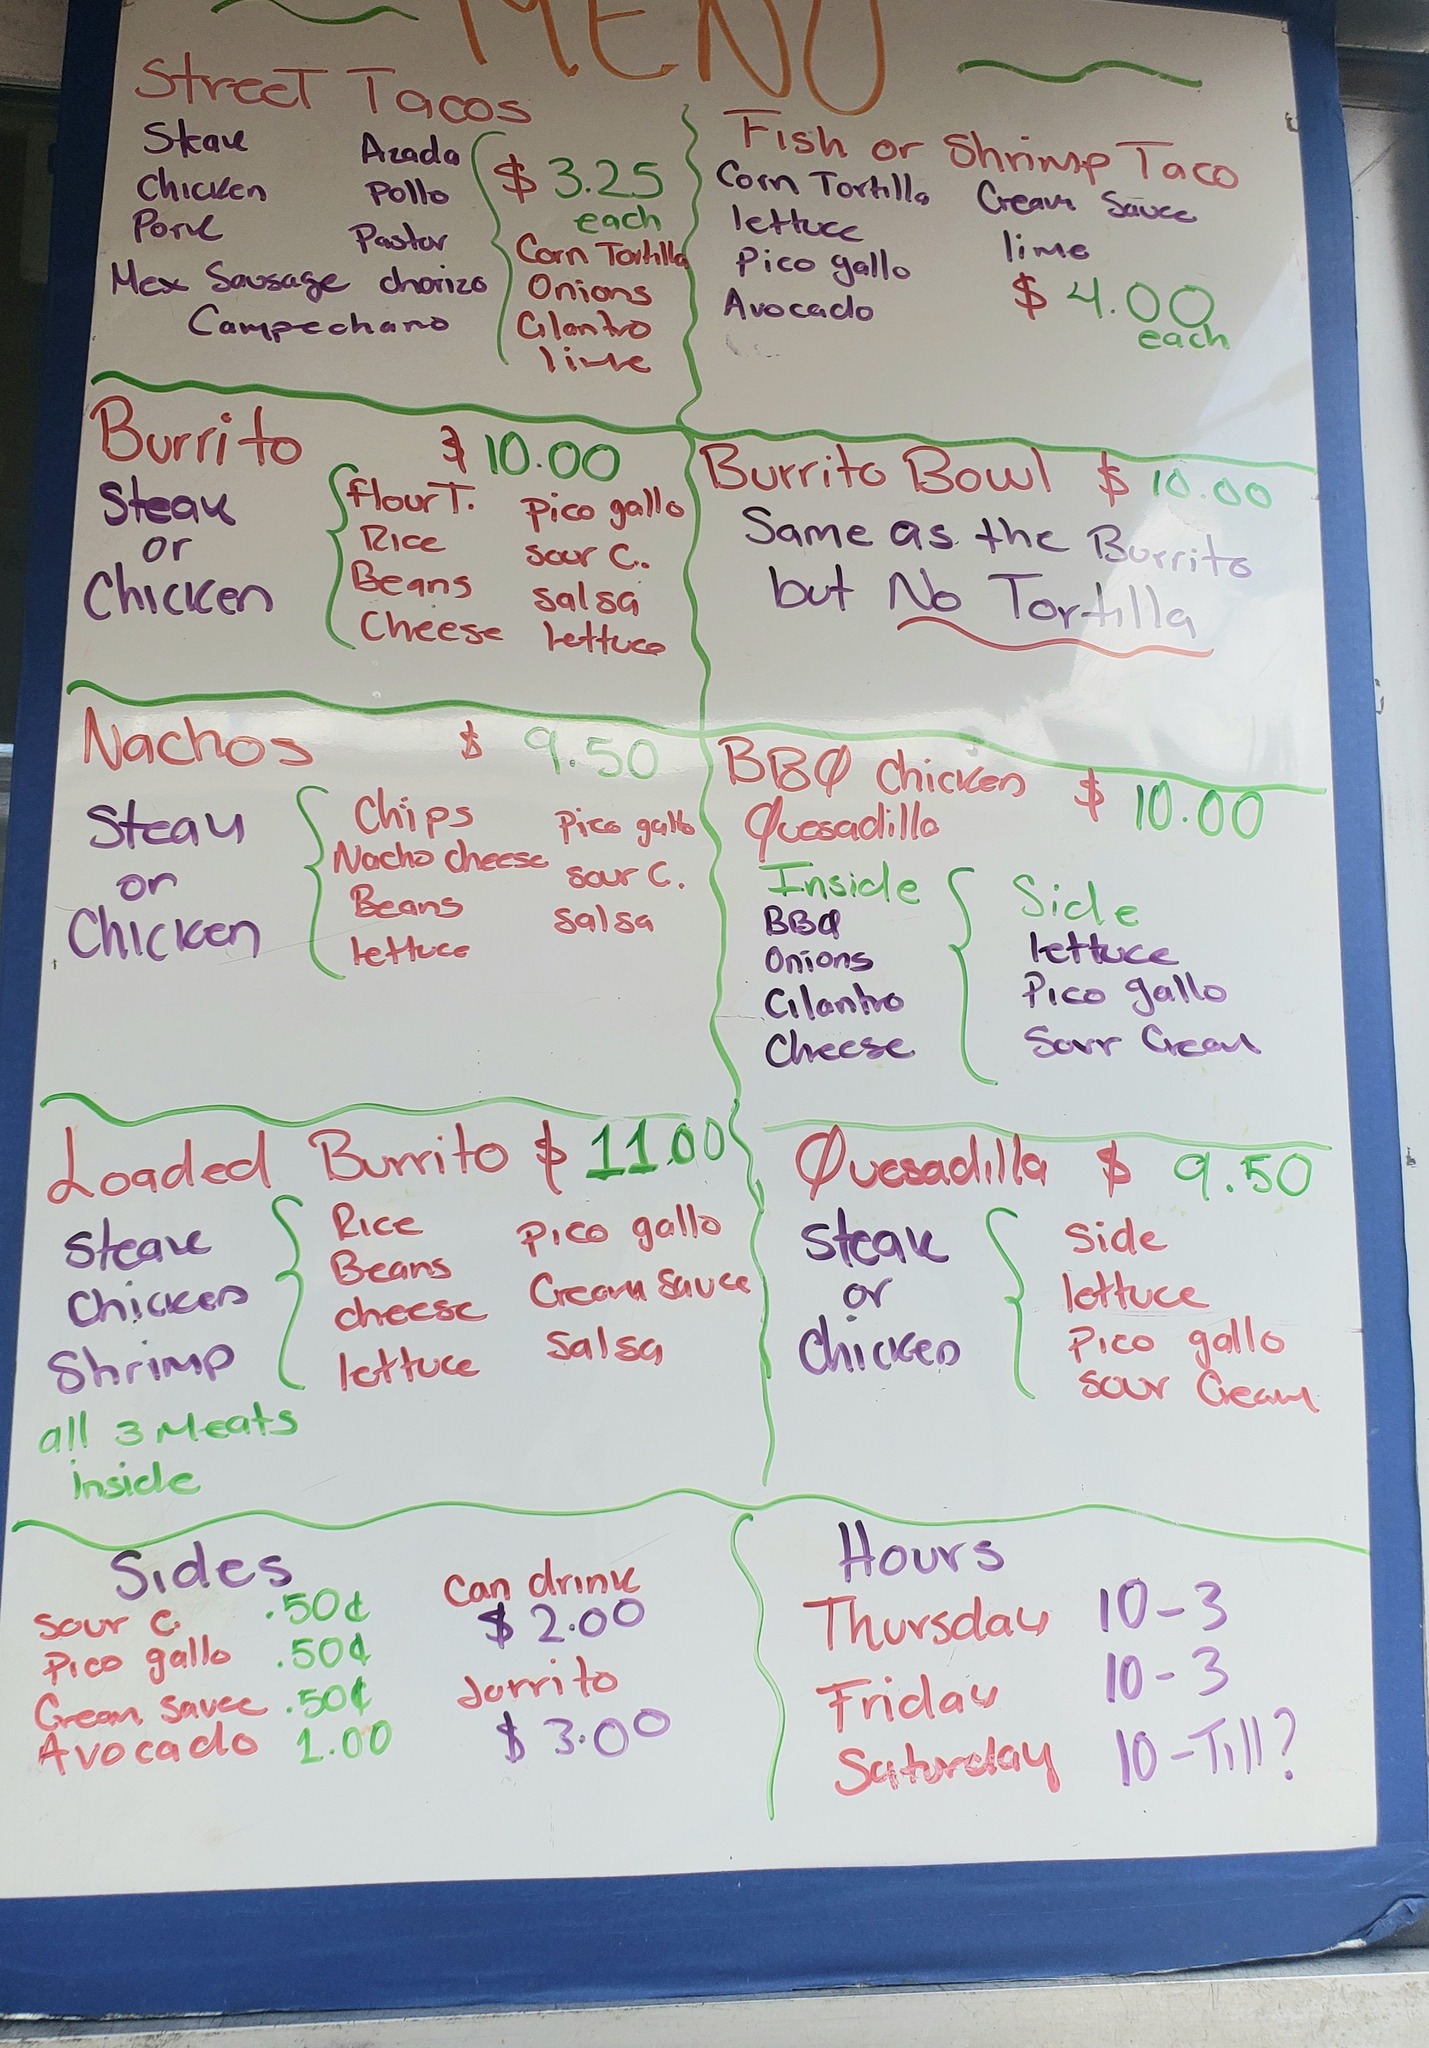 MENU
Street Tacos
Steak Azada
Chicken Pollo
Pork Pastor
Mex Sausage chorizo
Campechano
$ 3.25
each
Corn Tortilla
Onions
Cilantro
lime
Fish or Shrimp Taco
Corn Tortilla Cream Sauce
lettuce lime
Pico gallo
Avocado
$ 4.00
each
Burrito $ 10.00
Steak
or
Chicken
flour T. Pico gallo
Rice sour C.
Beans salsa
Cheese lettuce
Burrito Bowl $ 10.00
Same as the Burrito
but No Tortilla
Nachos $ 9.50
Steak
or
Chicken
Chips Pico gallo
Nacho cheese sour C.
Beans salsa
lettuce
BBQ Chicken $ 10.00
Quesadilla
Inside
BBQ
Onions
Cilantro
Cheese
Side
lettuce
Pico gallo
Sour Cream
Loaded Burrito $ 11.00
Steak
Chicken
Shrimp
all 3 Meats
inside
Rice Pico gallo
Beans Cream Sauce
cheese Salsa
lettuce
Quesadilla $ 9.50
Steak
or
Chicken
Side
lettuce
Pico gallo
sour Cream
Sides
sour C. .50¢
Pico gallo .50¢
Cream sauce .50¢
Avocado 1.00
Can drink
$ 2.00
Jorrito
$ 3.00
Hours
Thursday 10-3
Friday 10-3
Saturday 10-Till?